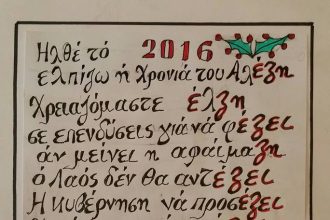 Ηλθέ τό 2016
ελπίζω ή Χρονιά του Αλέξη
Χρειαζόμαστε έλξη
σε επενδύσεις γιά νά φέξει
άν μείνει η αφαίμαξη
ο Λαός δέν θα αντέξει
Η Κυβέρνηση νά προσέξει